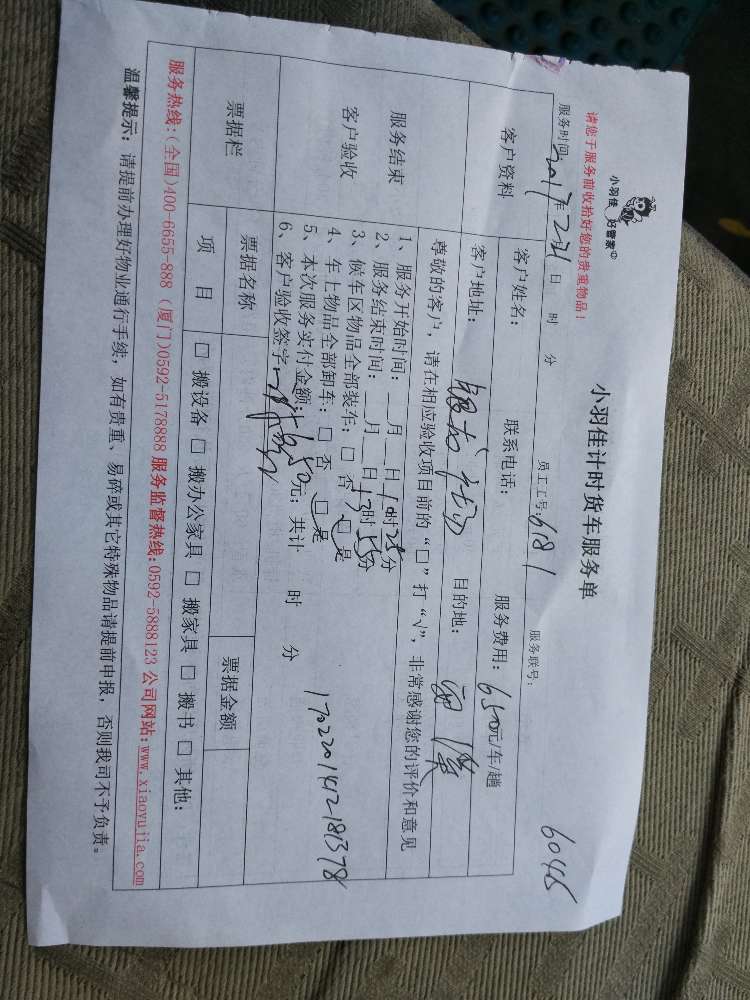 小羽佳 好管家
请您于服务前收拾好您的贵重物品！
小羽佳计时货车服务单
6045
服务时间: 2017年 2 21 日 时 分 员工工号: 6181 服务联号:
客户资料 客户姓名: 联系电话: 服务费用: 650元/车/趟
客户地址: 目的地:
服务结束
客户验收
尊敬的客户，请在相应验收项目前的“□”打“√”，非常感谢您的评价和意见
1、服务开始时间: __月__日10时25分
2、服务结束时间: __月__日13时55分
3、候车区物品全部装车: □ 否 □ 是
4、车上物品全部卸车: □ 否 □ 是
5、本次服务实付金额: 650元; 共计 时 分
6、客户验收签字:
1702201412181378
票据栏 票据名称 票据金额
项 目 □ 搬设备 □ 搬办公家具 □ 搬家具 □ 搬书 □ 其他:
服务热线:(全国)400-6655-888 (厦门)0592-5178888 服务监督热线:0592-5888123 公司网站:www.xiaoyujia.com
温馨提示: 请提前办理好物业通行手续，如有贵重、易碎或其它特殊物品请提前申报，否则我司不予负责。